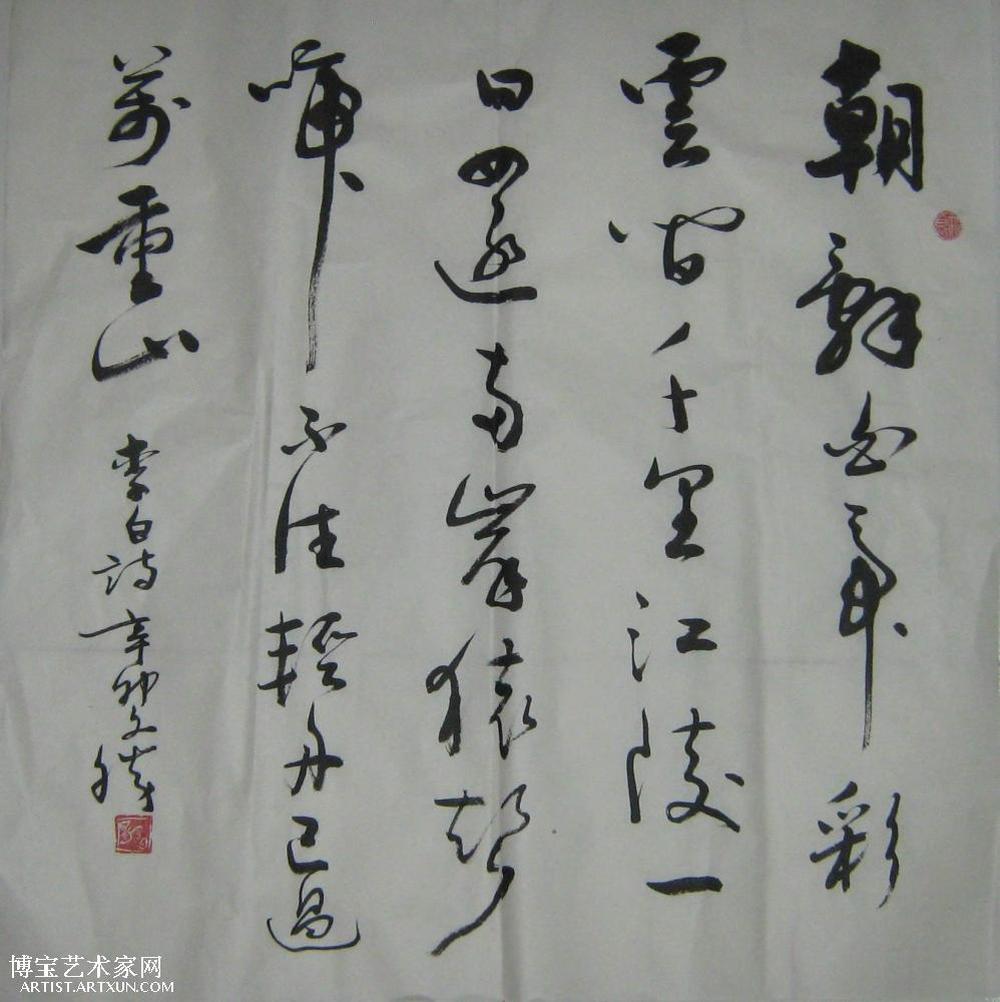 朝辭白帝彩
雲間千里江陵一
日還兩岸猿聲
啼不住輕舟已過
萬重山
李白詩辛卯文
博宝艺术家网
ARTIST.ARTXUN.COM